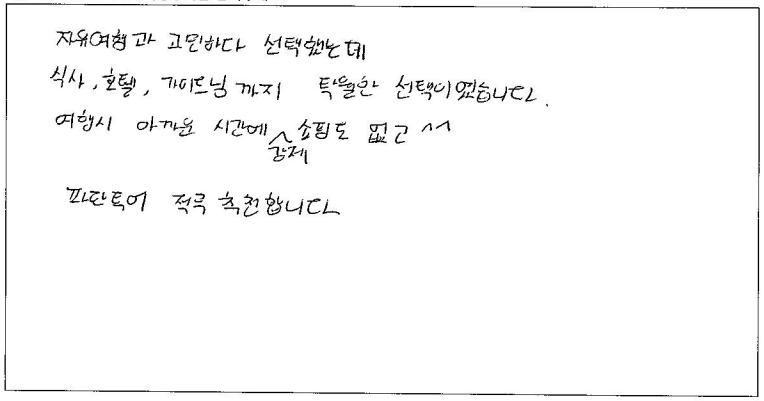 자유여행과 고민하다 선택했는데
식사, 호텔, 가이드님까지 탁월한 선택이였습니다.
여행시 아까운 시간에 강제 쇼핑도 없고 ^^
파단투어 적극 추천합니다